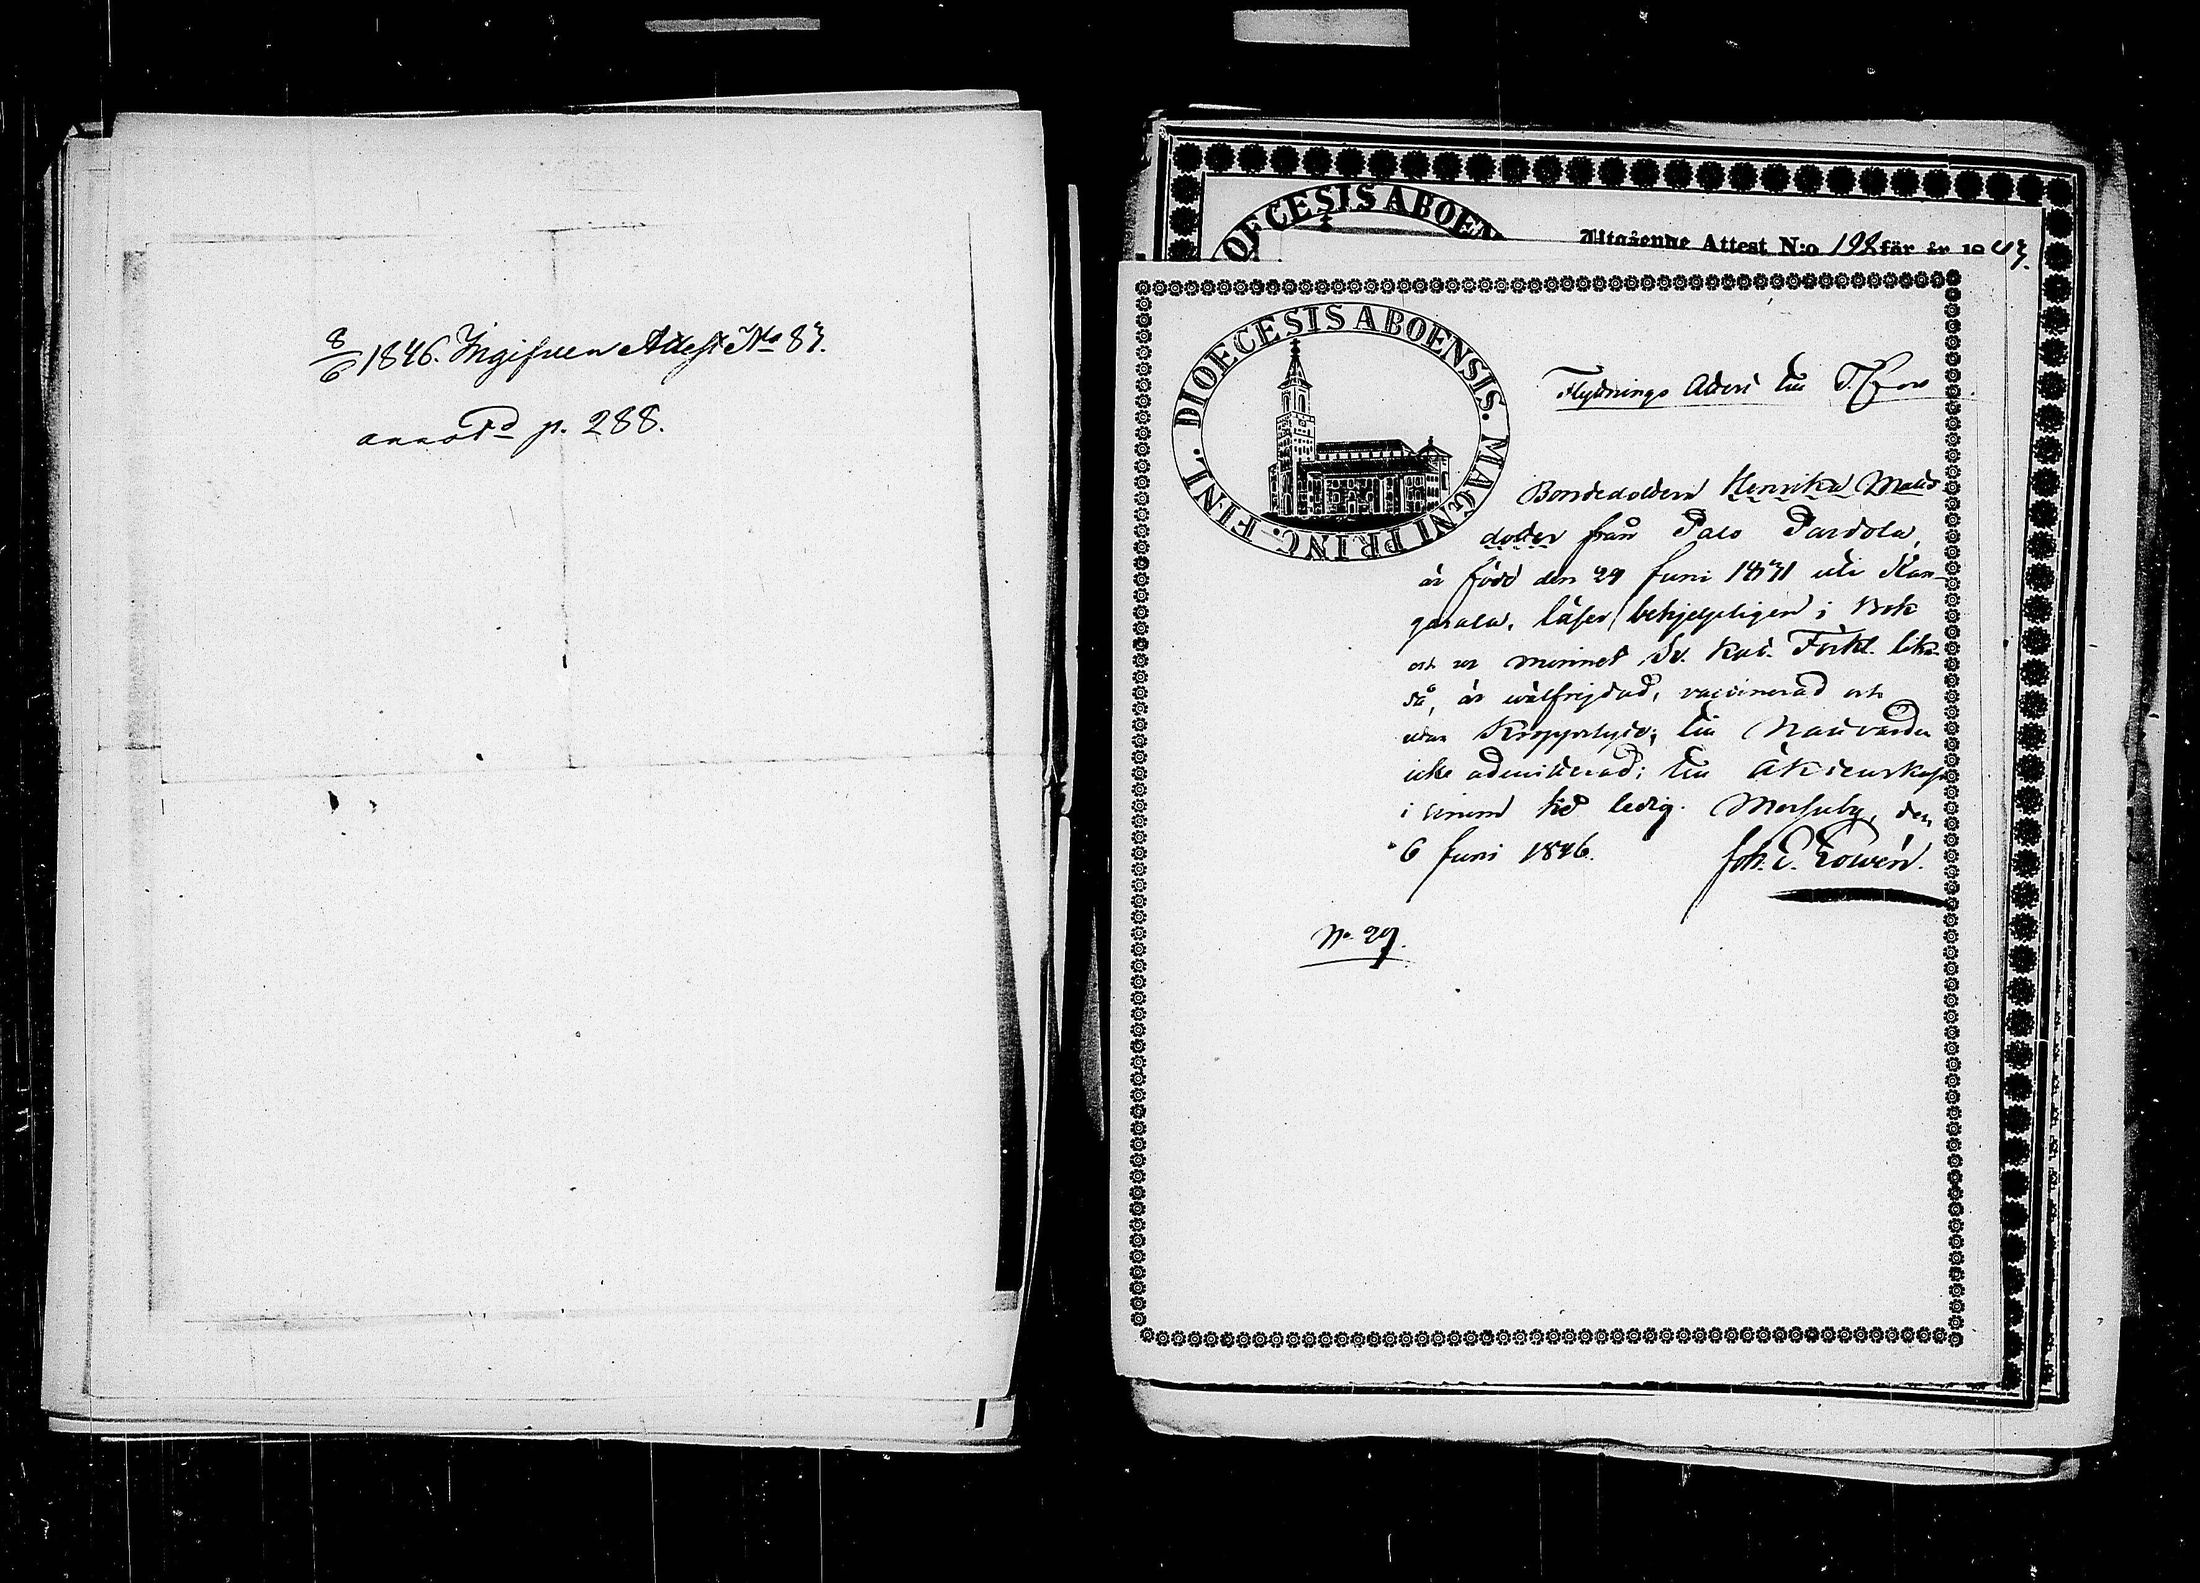 8/6 1846. Ingifven Attest No 83.
annot:d p. 288.
DIOECESIS ABOEN
Utgående Attest N:o 198 för år 1843.
DIOECESIS ABOENSIS. MAGNI PRINC. FINL.
Flyttnings Attest till
Bondedottern Henrika Mats
dotter från Palo Pardola,
är född den 29 Juni 1831 uti Kan-
gasala, läser behjelpligen i Bok
och ur minnet Sv. Kat. Förkl. lika-
så, är wälfrejdad, vaccinerad och
utan Kroppslyte; till Nattvarden
icke admitterad; till Äktenskap
i annan tid ledig. Messuby, den
6 Juni 1846. Joh. E.
No 29.